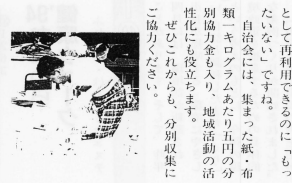 として再利用できるのに「もっ
たいない」ですね。
自治会には、集まった紙・布
類一キログラムあたり五円の分
別協力金も入り、地域活動の活
性化にも役立ちます。
ぜひこれからも、分別収集に
ご協力ください。